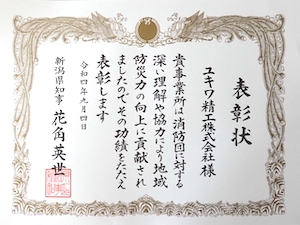 表彰状
ユキワ精工株式会社様
貴事業所は消防団に対する
深い理解や協力により地域
防災力の向上に貢献され
ましたのでその功績をたたえ
表彰します
令和四年九月四日
新潟県知事 花角英世